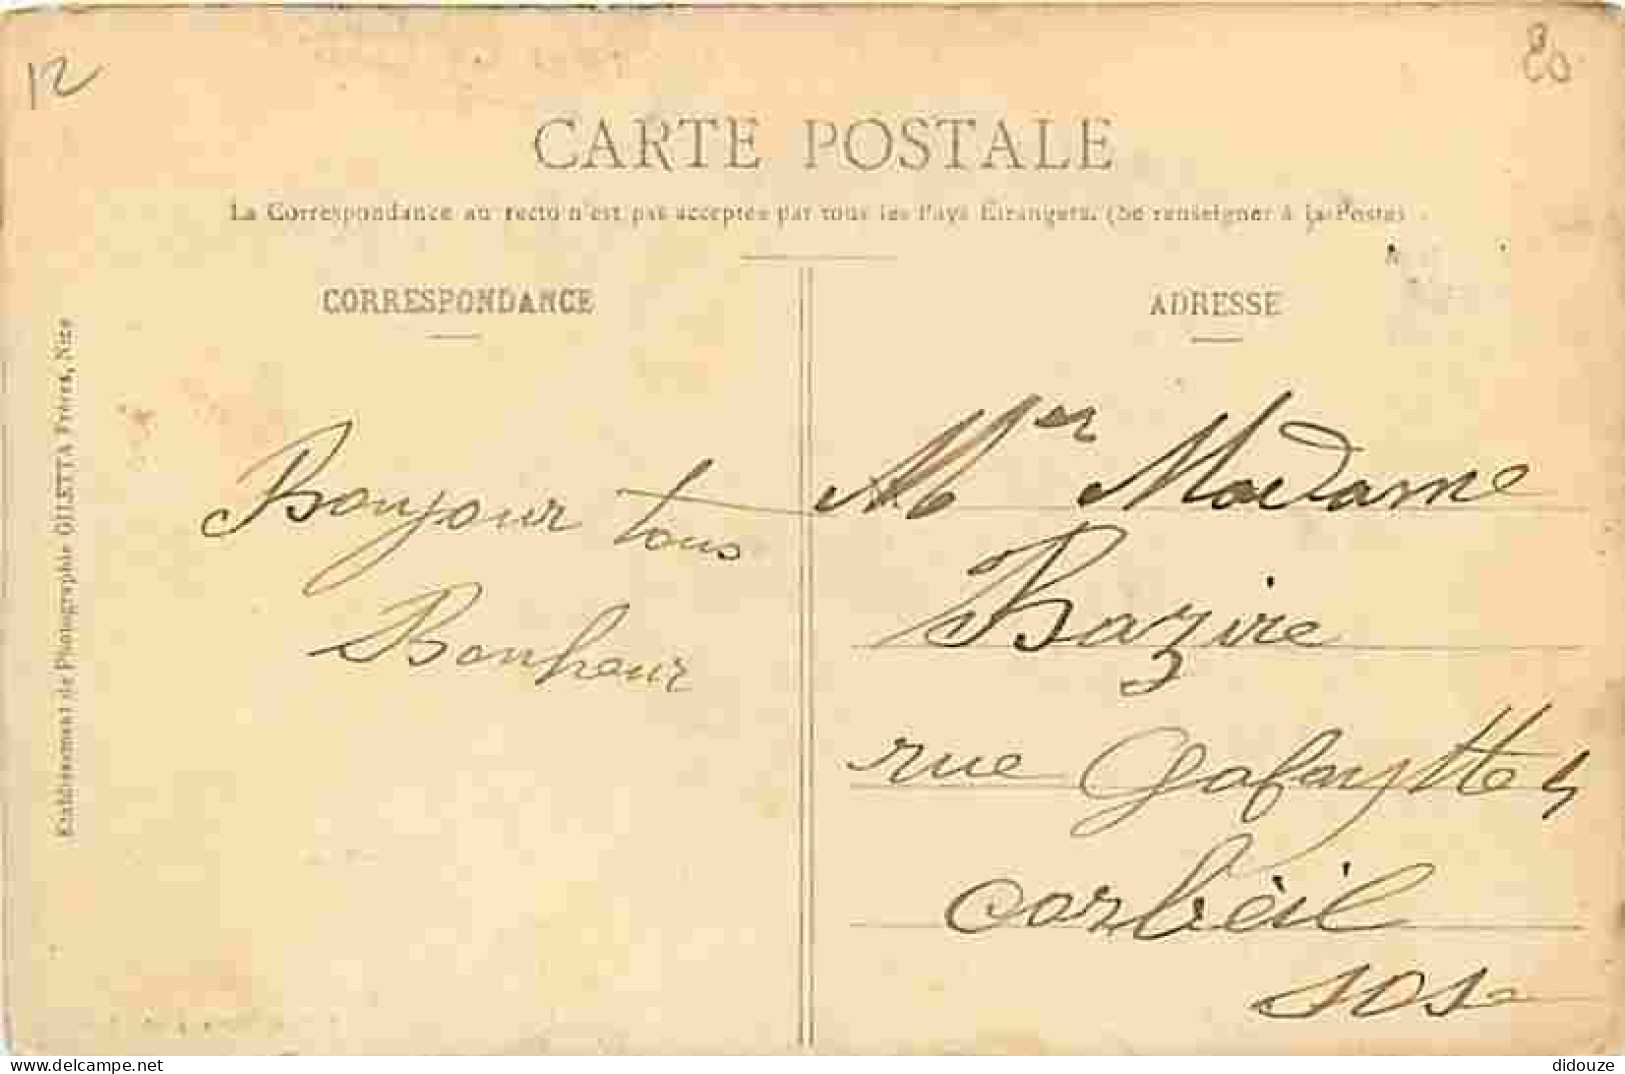 12
80
CARTE POSTALE
La Correspondance au recto n'est pas acceptée par tous les Pays Etrangers. (Se renseigner à la Poste)
CORRESPONDANCE
ADRESSE
Etablissement de Photographie GILETTA Frères, Nice
Bonjour tous
Bonheur
Mer Madame
Bazire
rue Lafayette 4
Corbeil
SOS
delcampe.net
didouze